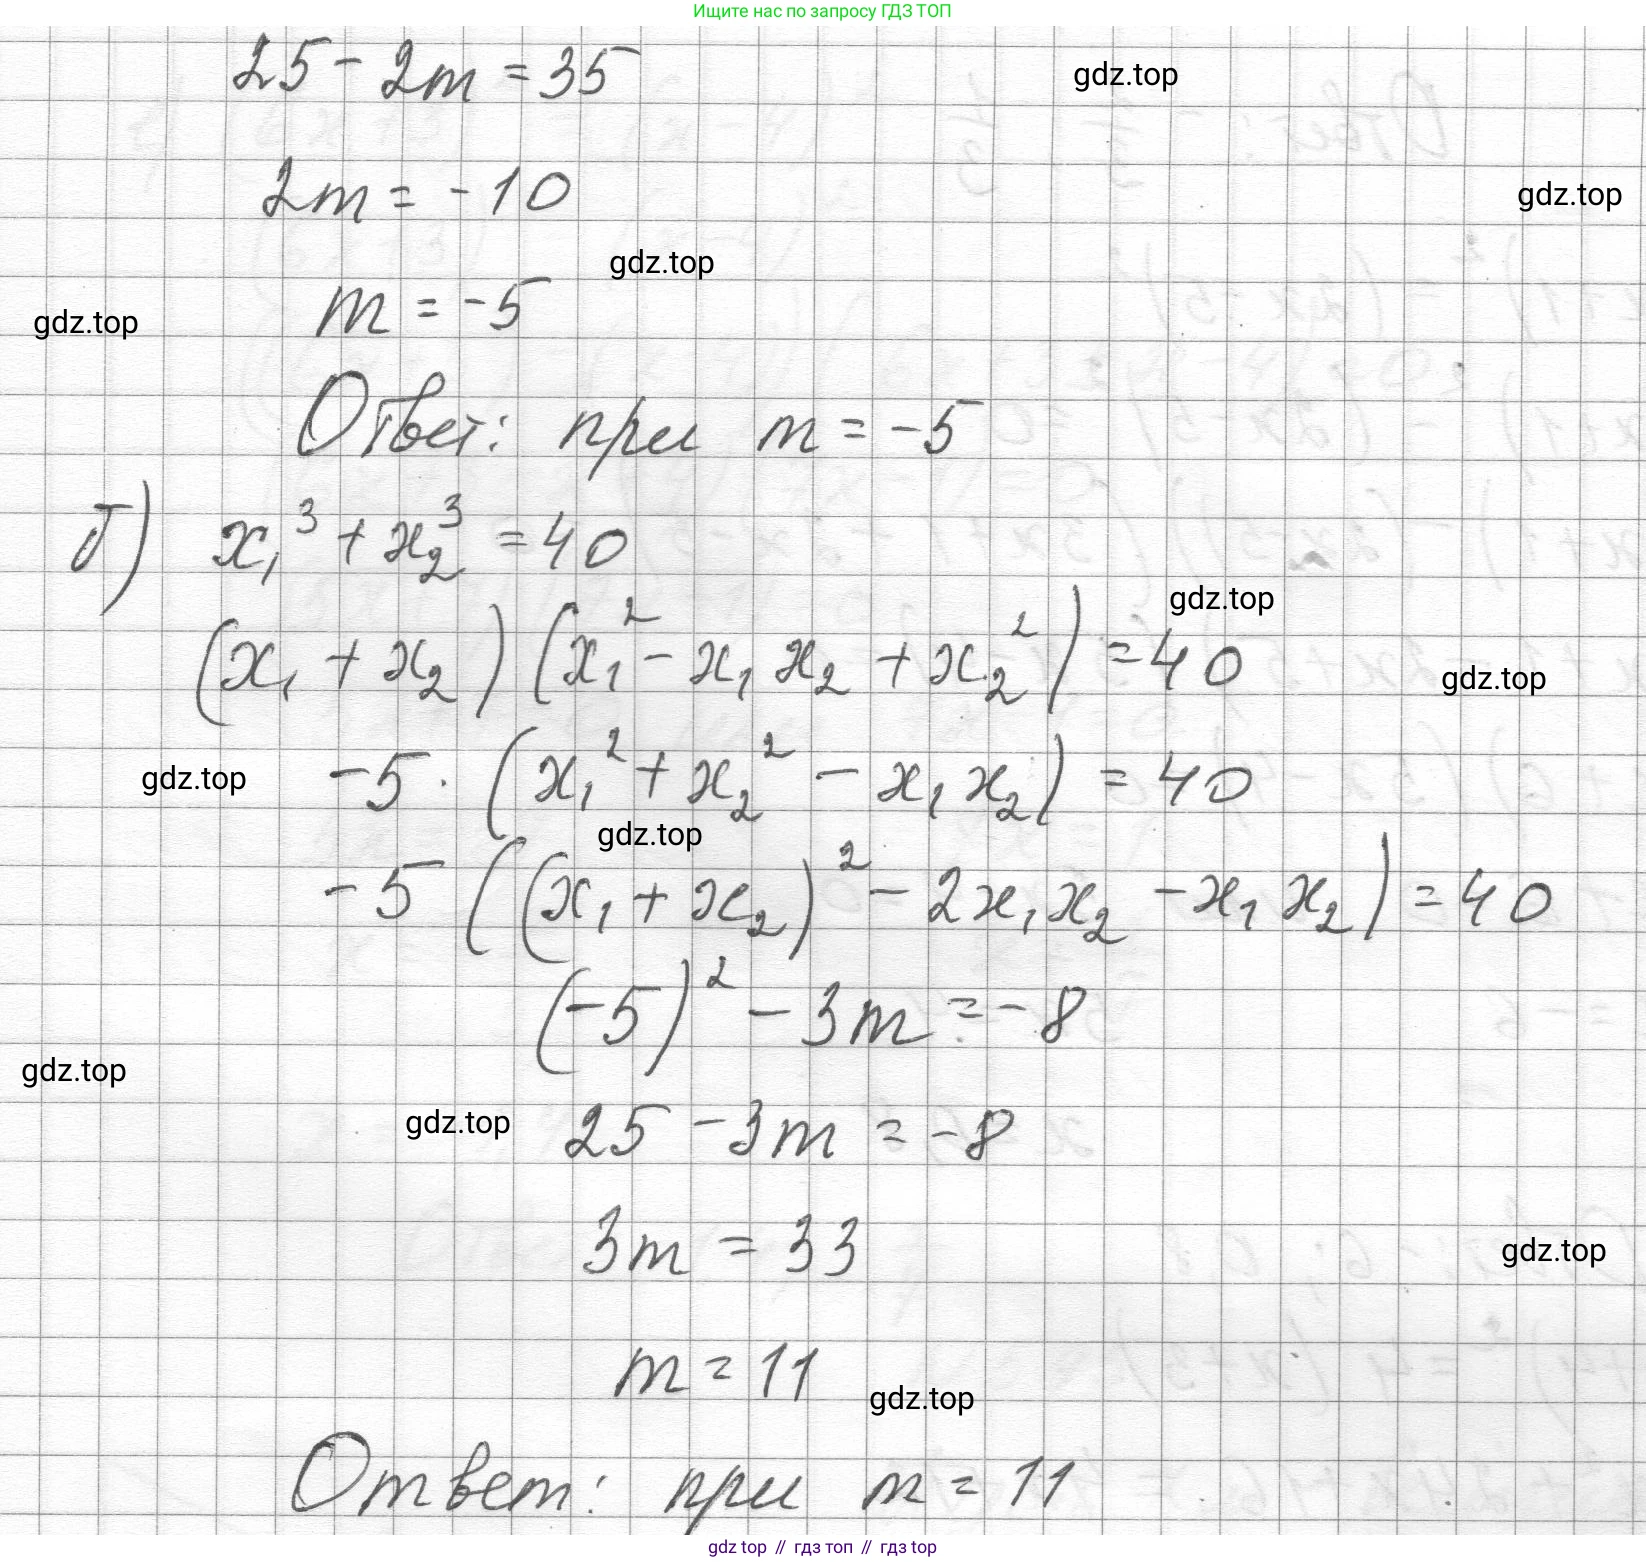 Ищите нас по запросу ГДЗ ТОП
25 - 2m = 35
gdz.top
2m = -10
gdz.top
gdz.top
m = -5
gdz.top
Ответ: при m = -5
б) x₁³ + x₂³ = 40
gdz.top
(x₁ + x₂)(x₁² - x₁x₂ + x₂²) = 40
gdz.top
-5 · (x₁² + x₂² - x₁x₂) = 40
gdz.top
gdz.top
-5((x₁ + x₂)² - 2x₁x₂ - x₁x₂) = 40
(-5)² - 3m = -8
gdz.top
25 - 3m = -8
gdz.top
3m = 33
gdz.top
m = 11
gdz.top
Ответ: при m = 11
gdz top // гдз топ // гдз top